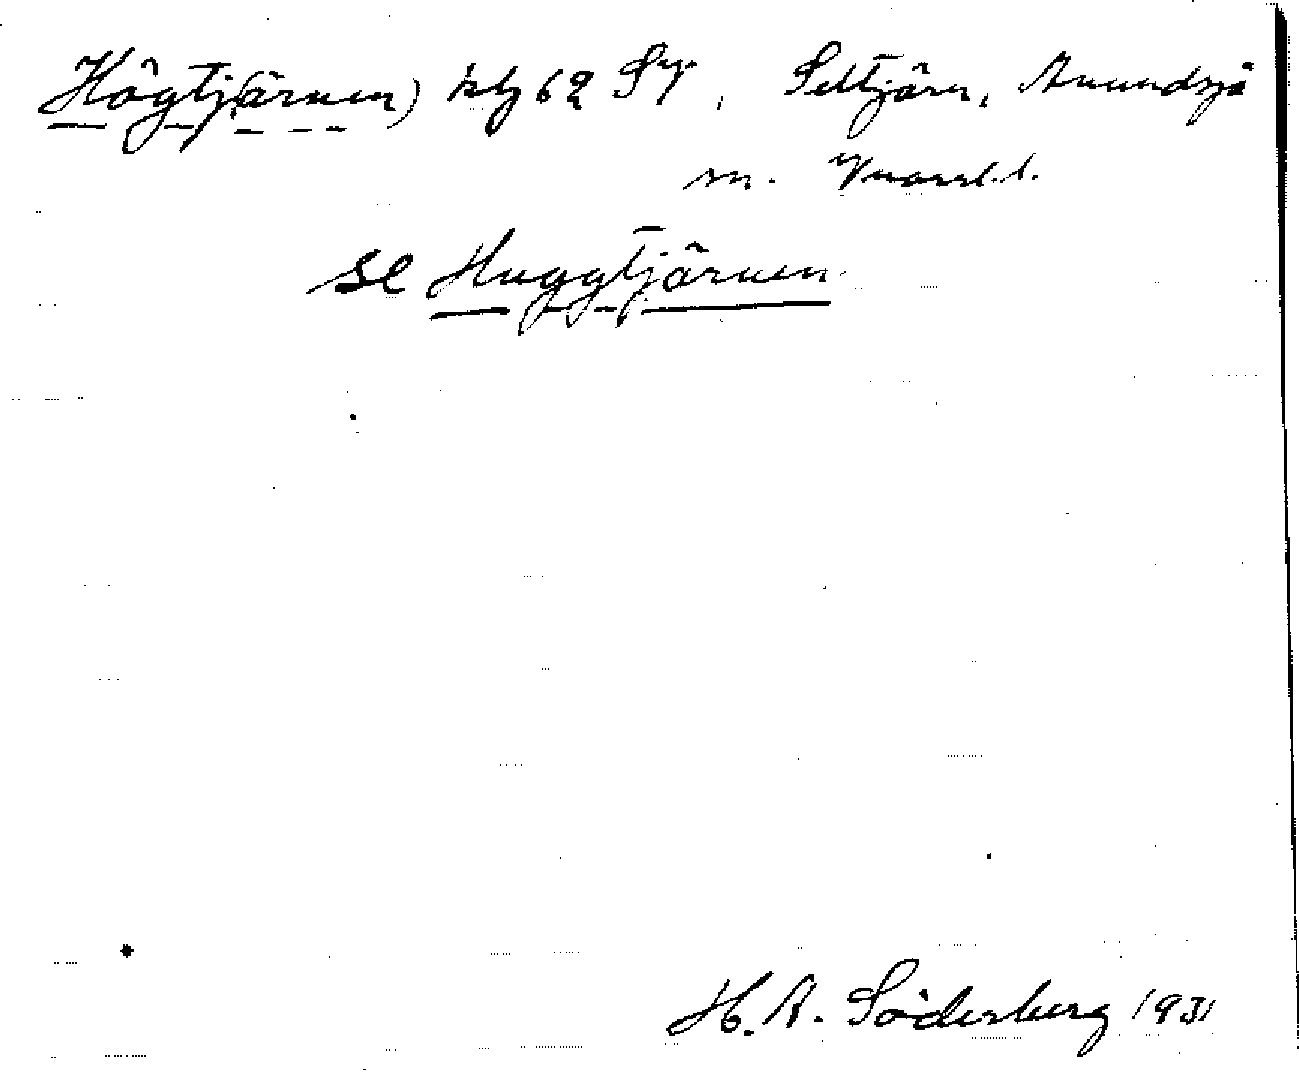 Högtj(ärnen) kbl 62 Sy, Seltjärn, Anundsjö
sn.
se Huggtjärnen
H. A. Söderberg 1931